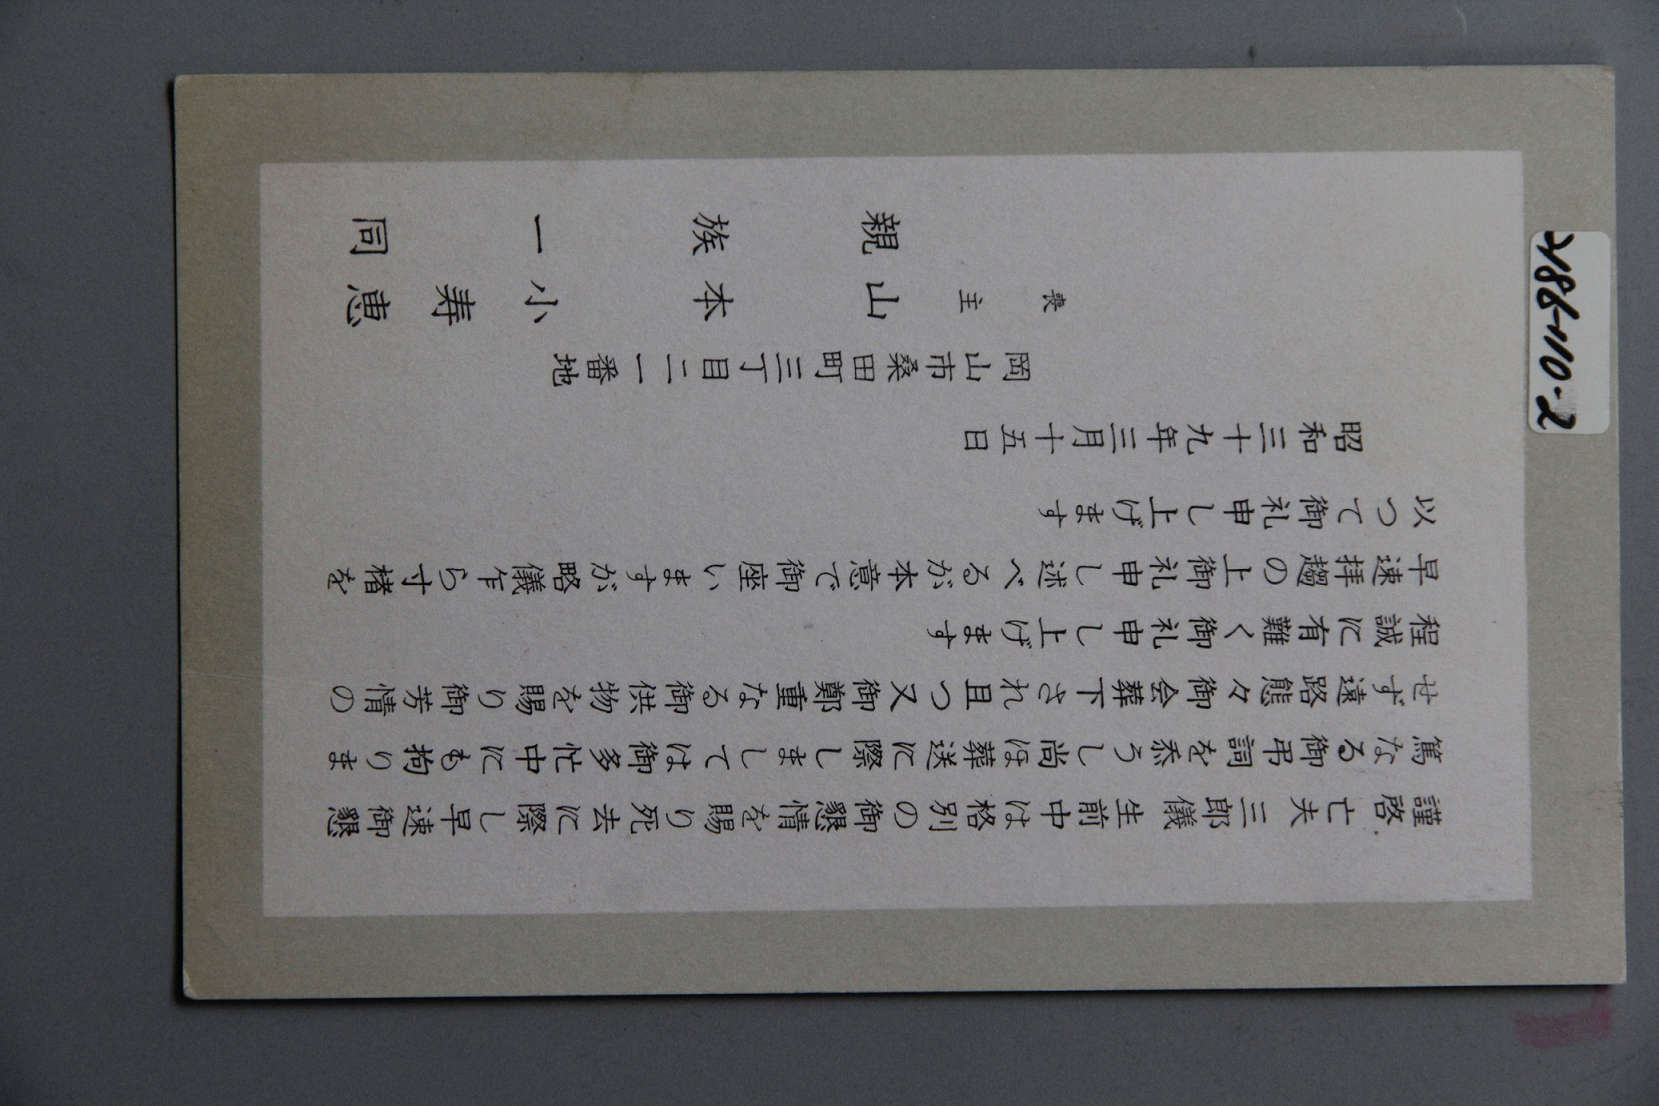 謹啓 亡夫 三郎儀 生前中は格別の御懇情を賜り死去に際し早速御懇
篤なる御弔詞を忝うし尚ほ葬送に際しましては御多忙中にも拘りま
せず遠路態々御会葬下され且つ又御鄭重なる御供物を賜り御芳情の
程誠に有難く御礼申し上げます
早速拝趨の上御礼申し述べるが本意で御座いますが略儀乍ら寸楮を
以つて御礼申し上げます
昭和三十九年三月十五日
岡山市桑田町三丁目二一番地
喪主 山本小寿恵
親族一同
2186-110-2